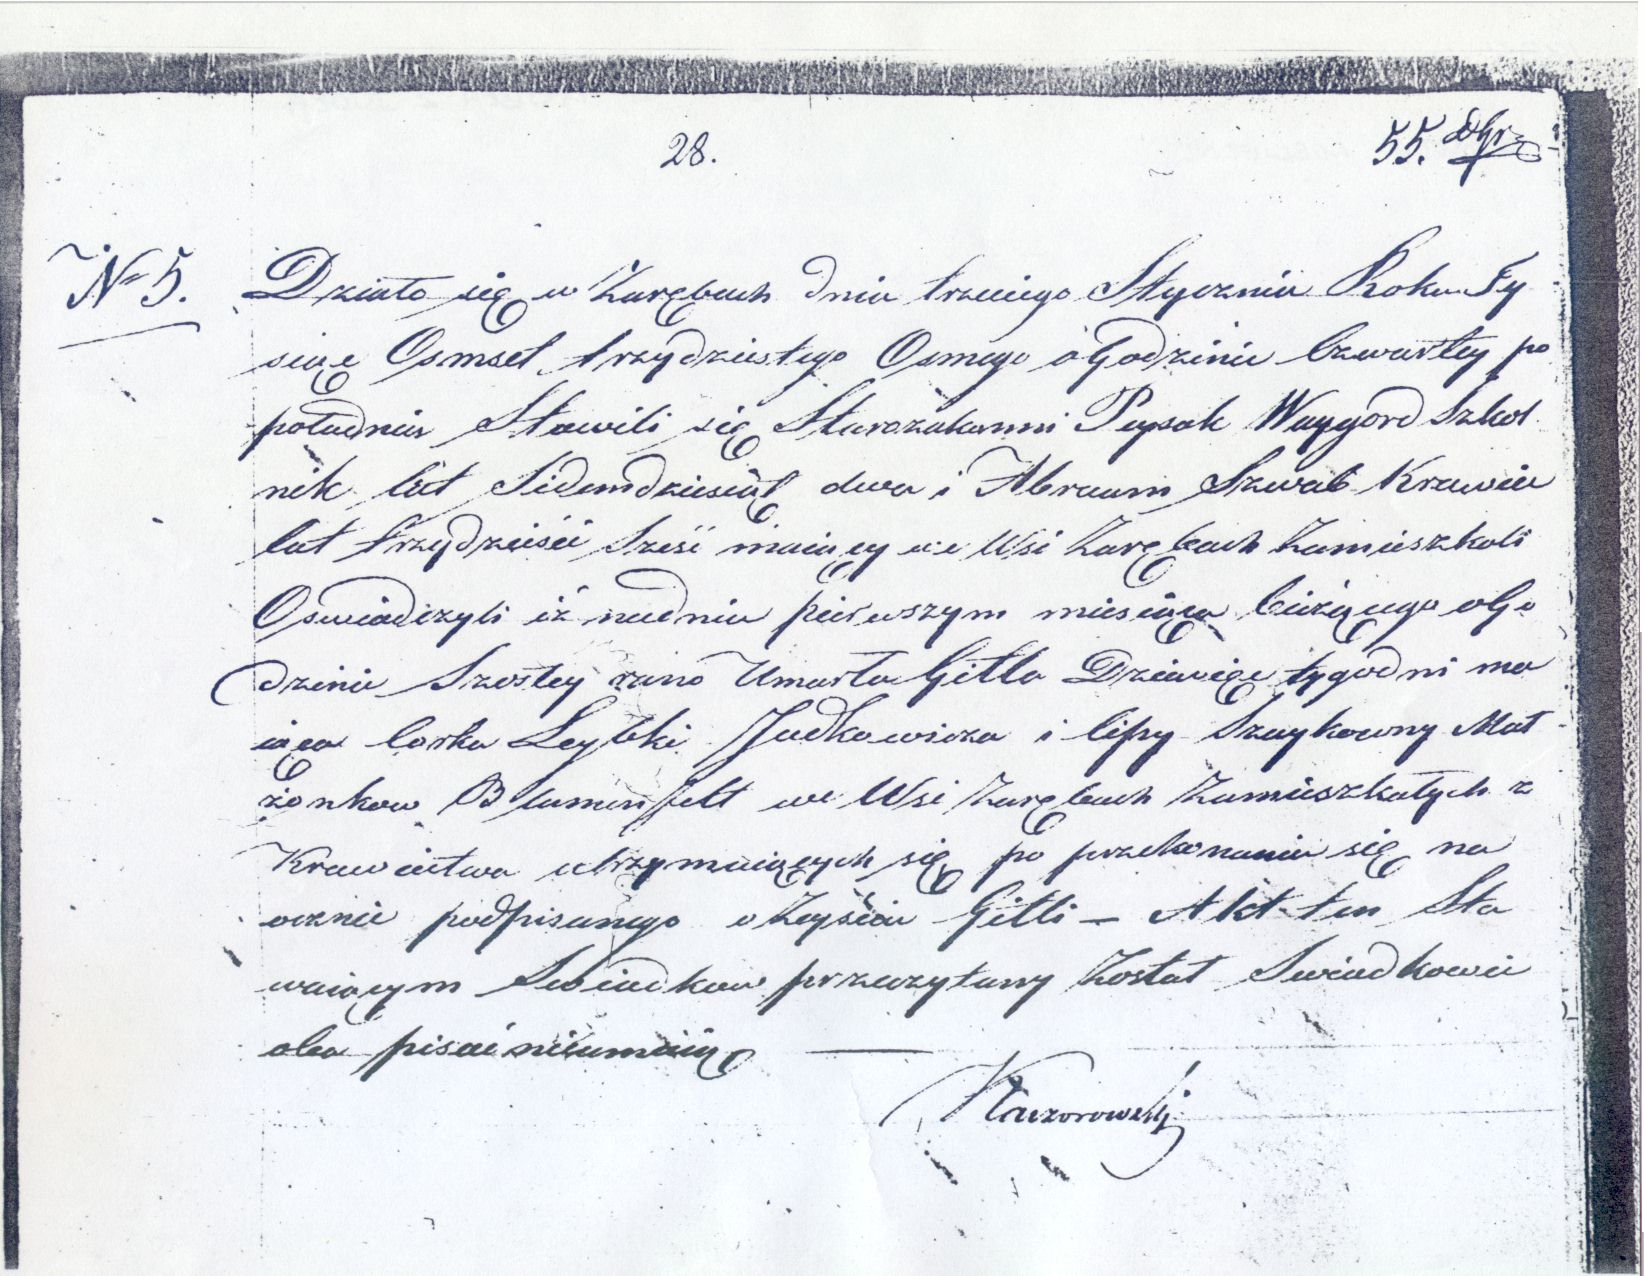 28.
55.
No 5.
Działo się w Zarębach dnia trzeciego Stycznia Roku Ty
siąc Osmset trzydziestego Osmego o Godzinie Czwartey po
południu Stawili się Starozakonni Peysak Waygord Szkol
nik lat Sidemdziesiąt dwa i Abraam Szwab Krawiec
lat trzydzieści Sześć maiący we Wsi Zarębach Zamieszkali
Oswiadczyli iż na dniu pierwszym miesiąca bieżącego o Go
dzinie Szostey rano Umarła Gitla Dziewięc tygodni ma
iąca Corka Leybki Judkowicza i Cipy Szaykowny Mał
żonkow Blumenfelt we Wsi Zarębach Zamieszkałych z
Krawiectwa utrzymaiących się po przekonaniu się na
ocznie podpisanego o Zeyściu Gitli – Akt ten Sta
waiącym Swiadkow przeczytany Został Swiadkowie
oba pisać nieumieią
Kaczorowski